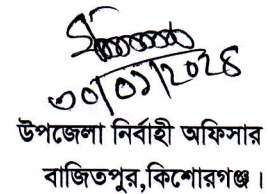 ৩০/০১/২০২৪
উপজেলা নির্বাহী অফিসার
বাজিতপুর, কিশোরগঞ্জ।